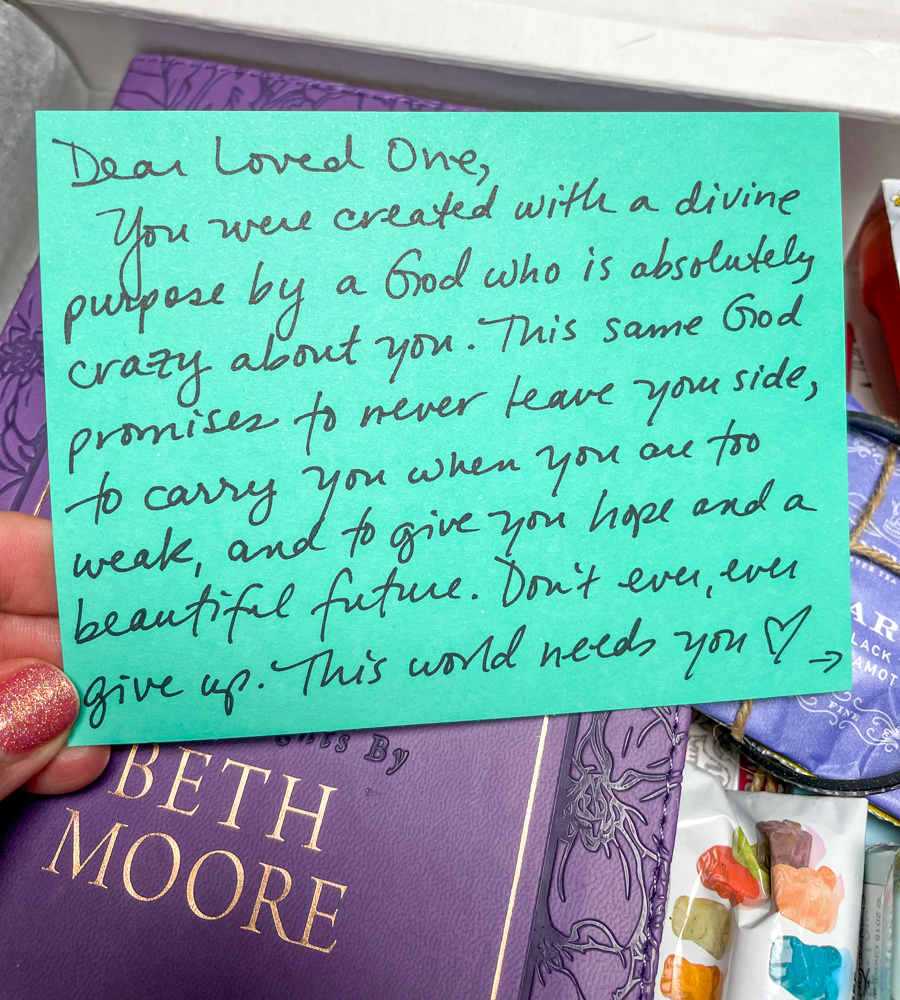 Dear Loved One,
You were created with a divine
purpose by a God who is absolutely
crazy about you. This same God
promises to never leave your side,
to carry you when you are too
weak, and to give you hope and a
beautiful future. Don't ever, ever
give up. This world needs you ♡ →
By
BETH
MOORE
AR
LACK
AMOT
FINE